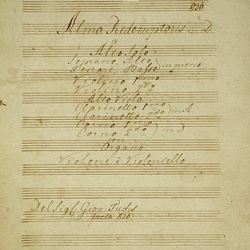 Alma Redemptoris in D
Alto Solo
Soprano, Alto
Tenore, Basso in pieno
Violino 1mo
Violino 2do
Alto Viola
Clarinetto 1mo
Clarinetto 2do in A
Corno 1mo
Corno 2do in D
con
Organo
Violone è Violoncello
Del Sigl. Giov: Fuchs